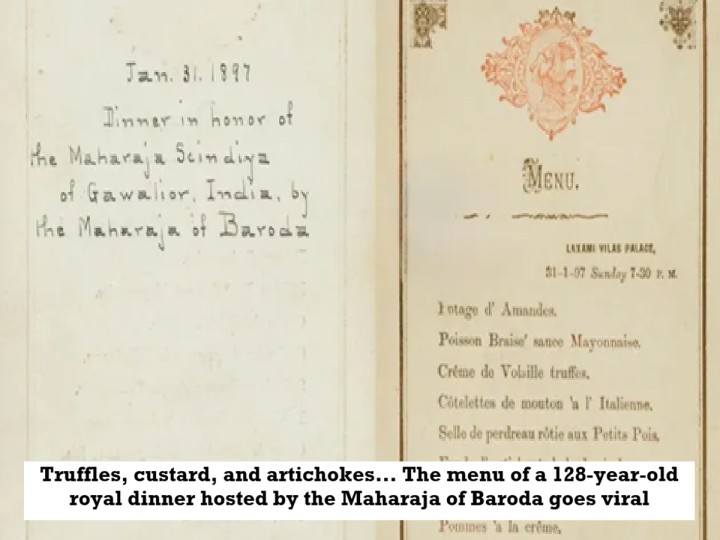 Jan. 31. 1897
Dinner in honor of
the Maharaja Scindiya
of Gawalior, India, by
the Maharaja of Baroda
MENU.
LAXAMI VILAS PALACE,
31-1-97 Sunday 7-30 P. M.
Potage d' Amandes.
Poisson Braise' sauce Mayonnaise.
Crême de Volaille truffes.
Côtelettes de mouton 'a l' Italienne.
Selle de perdreau rôtie aux Petits Pois.
Truffles, custard, and artichokes... The menu of a 128-year-old
royal dinner hosted by the Maharaja of Baroda goes viral
Pommes 'a la crême,